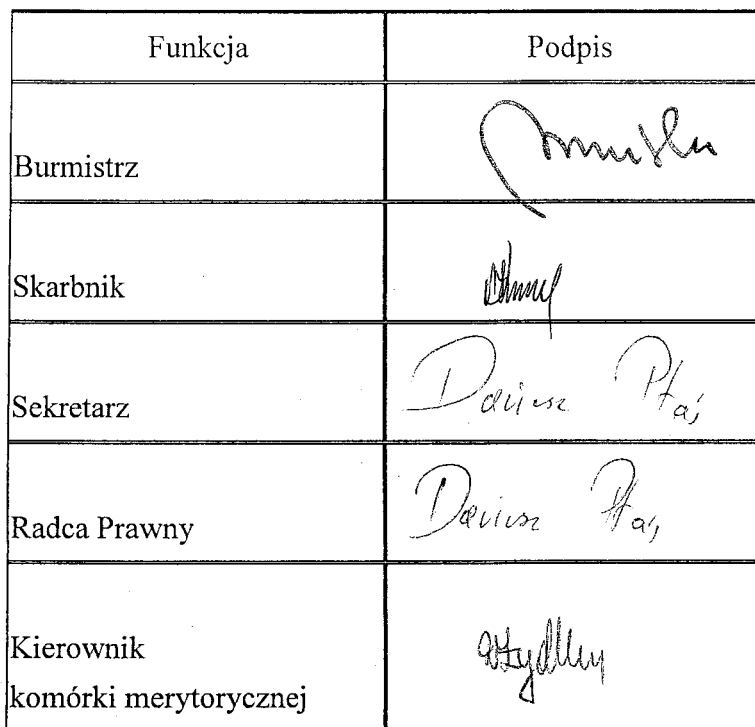 Funkcja Podpis
Burmistrz
Skarbnik
Sekretarz Dariusz Ptaś
Radca Prawny Dariusz Ptaś
Kierownik
komórki merytorycznej